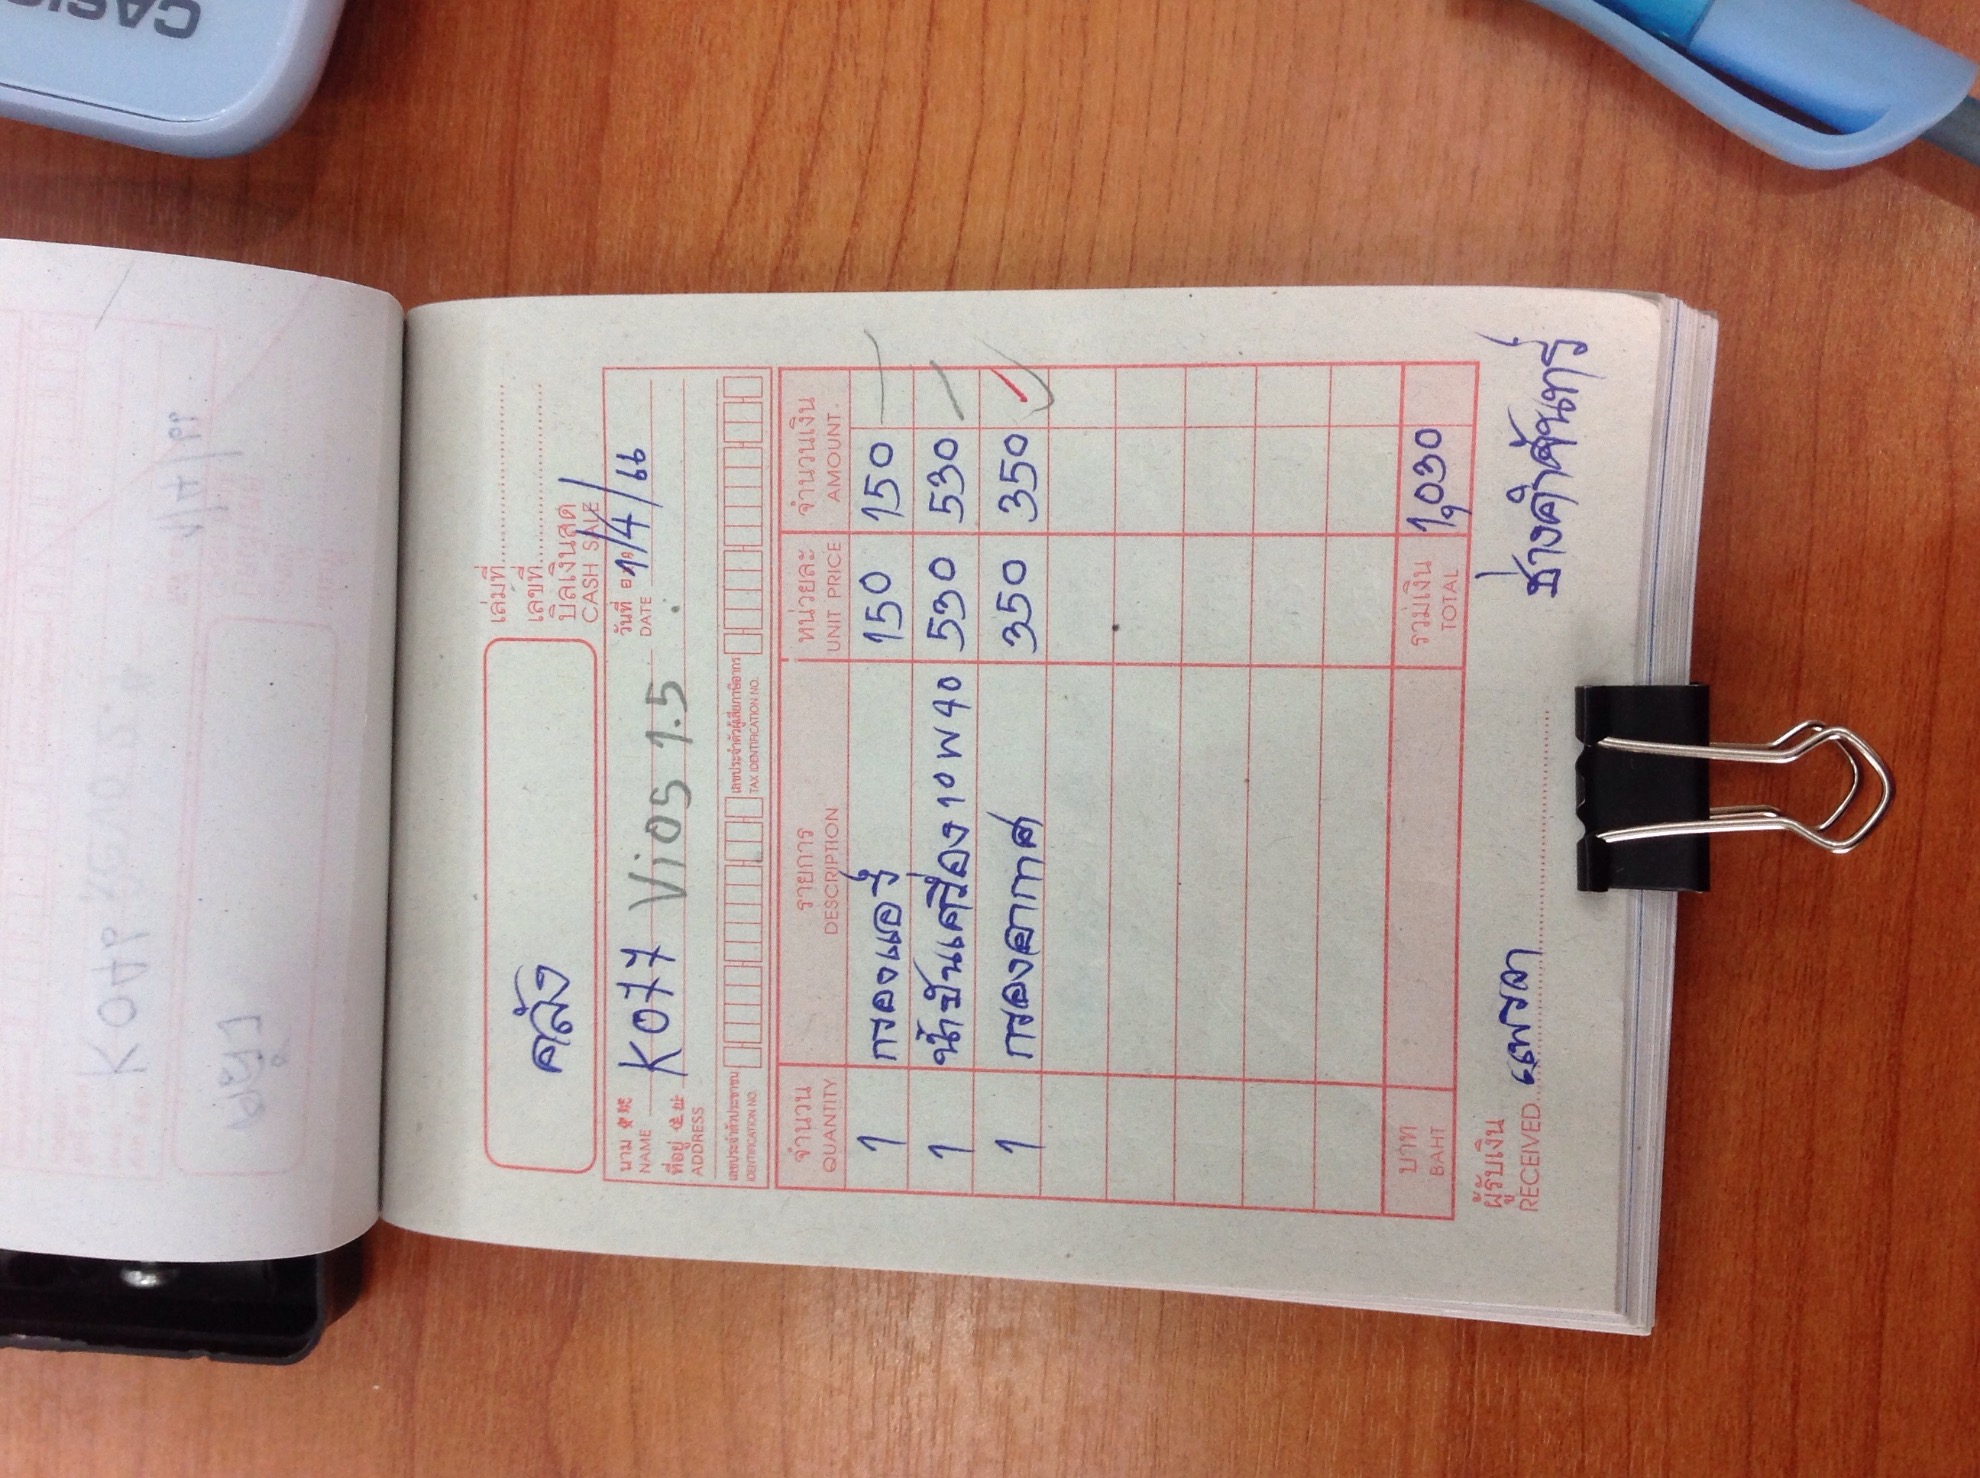 CASIO
เล่มที่
เลขที่
บิลเงินสด
CASH SALE
คลัง
วันที่
DATE 1/4/66
นาม
NAME K077 Vios 1.5
ที่อยู่
ADDRESS
เลขประจำตัวประชาชน
IDENTIFICATION NO.
เลขประจำตัวผู้เสียภาษีอากร
TAX IDENTIFICATION NO.
จำนวน รายการ หน่วยละ จำนวนเงิน
QUANTITY DESCRIPTION UNIT PRICE AMOUNT
1 กรองแอร์ 150 150
1 น้ำมันเครื่อง 10W40 530 530
1 กรองอากาศ 350 350
บาท รวมเงิน
BAHT TOTAL 1,030
ผู้รับเงิน
RECEIVED แพรวา
ช่างคำจันทร์